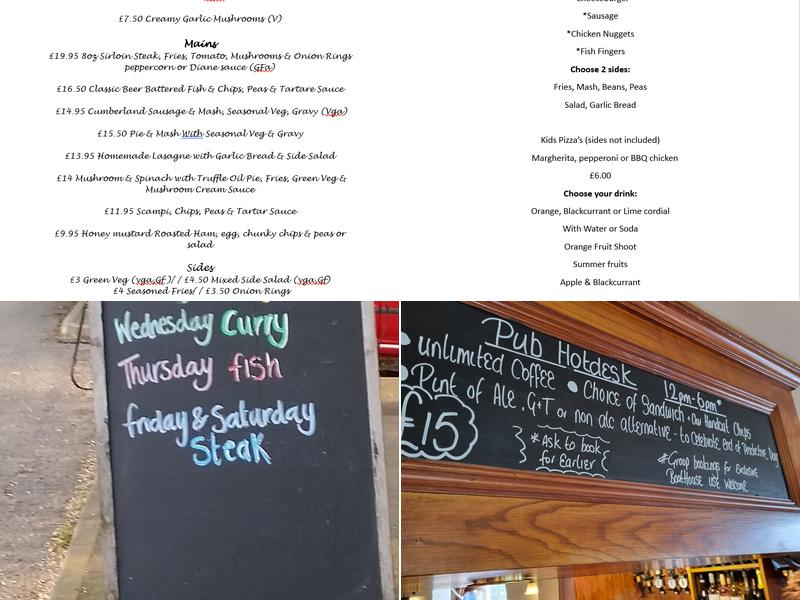 £7.50 Creamy Garlic Mushrooms (V)
Mains
£19.95 8oz Sirloin Steak, Fries, Tomato, Mushrooms & Onion Rings
peppercorn or Diane sauce (GFa)
£16.50 Classic Beer Battered Fish & Chips, Peas & Tartare Sauce
£14.95 Cumberland Sausage & Mash, Seasonal Veg, Gravy (Vga)
£15.50 Pie & Mash With Seasonal Veg & Gravy
£13.95 Homemade Lasagne with Garlic Bread & Side Salad
£14 Mushroom & Spinach with Truffle Oil Pie, Fries, Green Veg &
Mushroom Cream Sauce
£11.95 Scampi, Chips, Peas & Tartar Sauce
£9.95 Honey mustard Roasted Ham, egg, chunky chips & peas or
salad
Sides
£3 Green Veg (vga,Gf)/ / £4.50 Mixed Side Salad (vga,Gf)
£4 Seasoned Fries/ / £3.50 Onion Rings
*Sausage
*Chicken Nuggets
*Fish Fingers
Choose 2 sides:
Fries, Mash, Beans, Peas
Salad, Garlic Bread
Kids Pizza's (sides not included)
Margherita, pepperoni or BBQ chicken
£6.00
Choose your drink:
Orange, Blackcurrant or Lime cordial
With Water or Soda
Orange Fruit Shoot
Summer fruits
Apple & Blackcurrant
Wednesday Curry
Thursday fish
friday & Saturday
Steak
Pub Hotdesk
12pm-6pm*
• unlimited Coffee • Choice of Sandwich + Our Handcut Chips
• Pint of Ale, G+T or non alc alternative - to Celebrate end of Productive Day
£15
*Ask to book
for Earlier
*Group bookings for exclusive
Boathouse use welcome